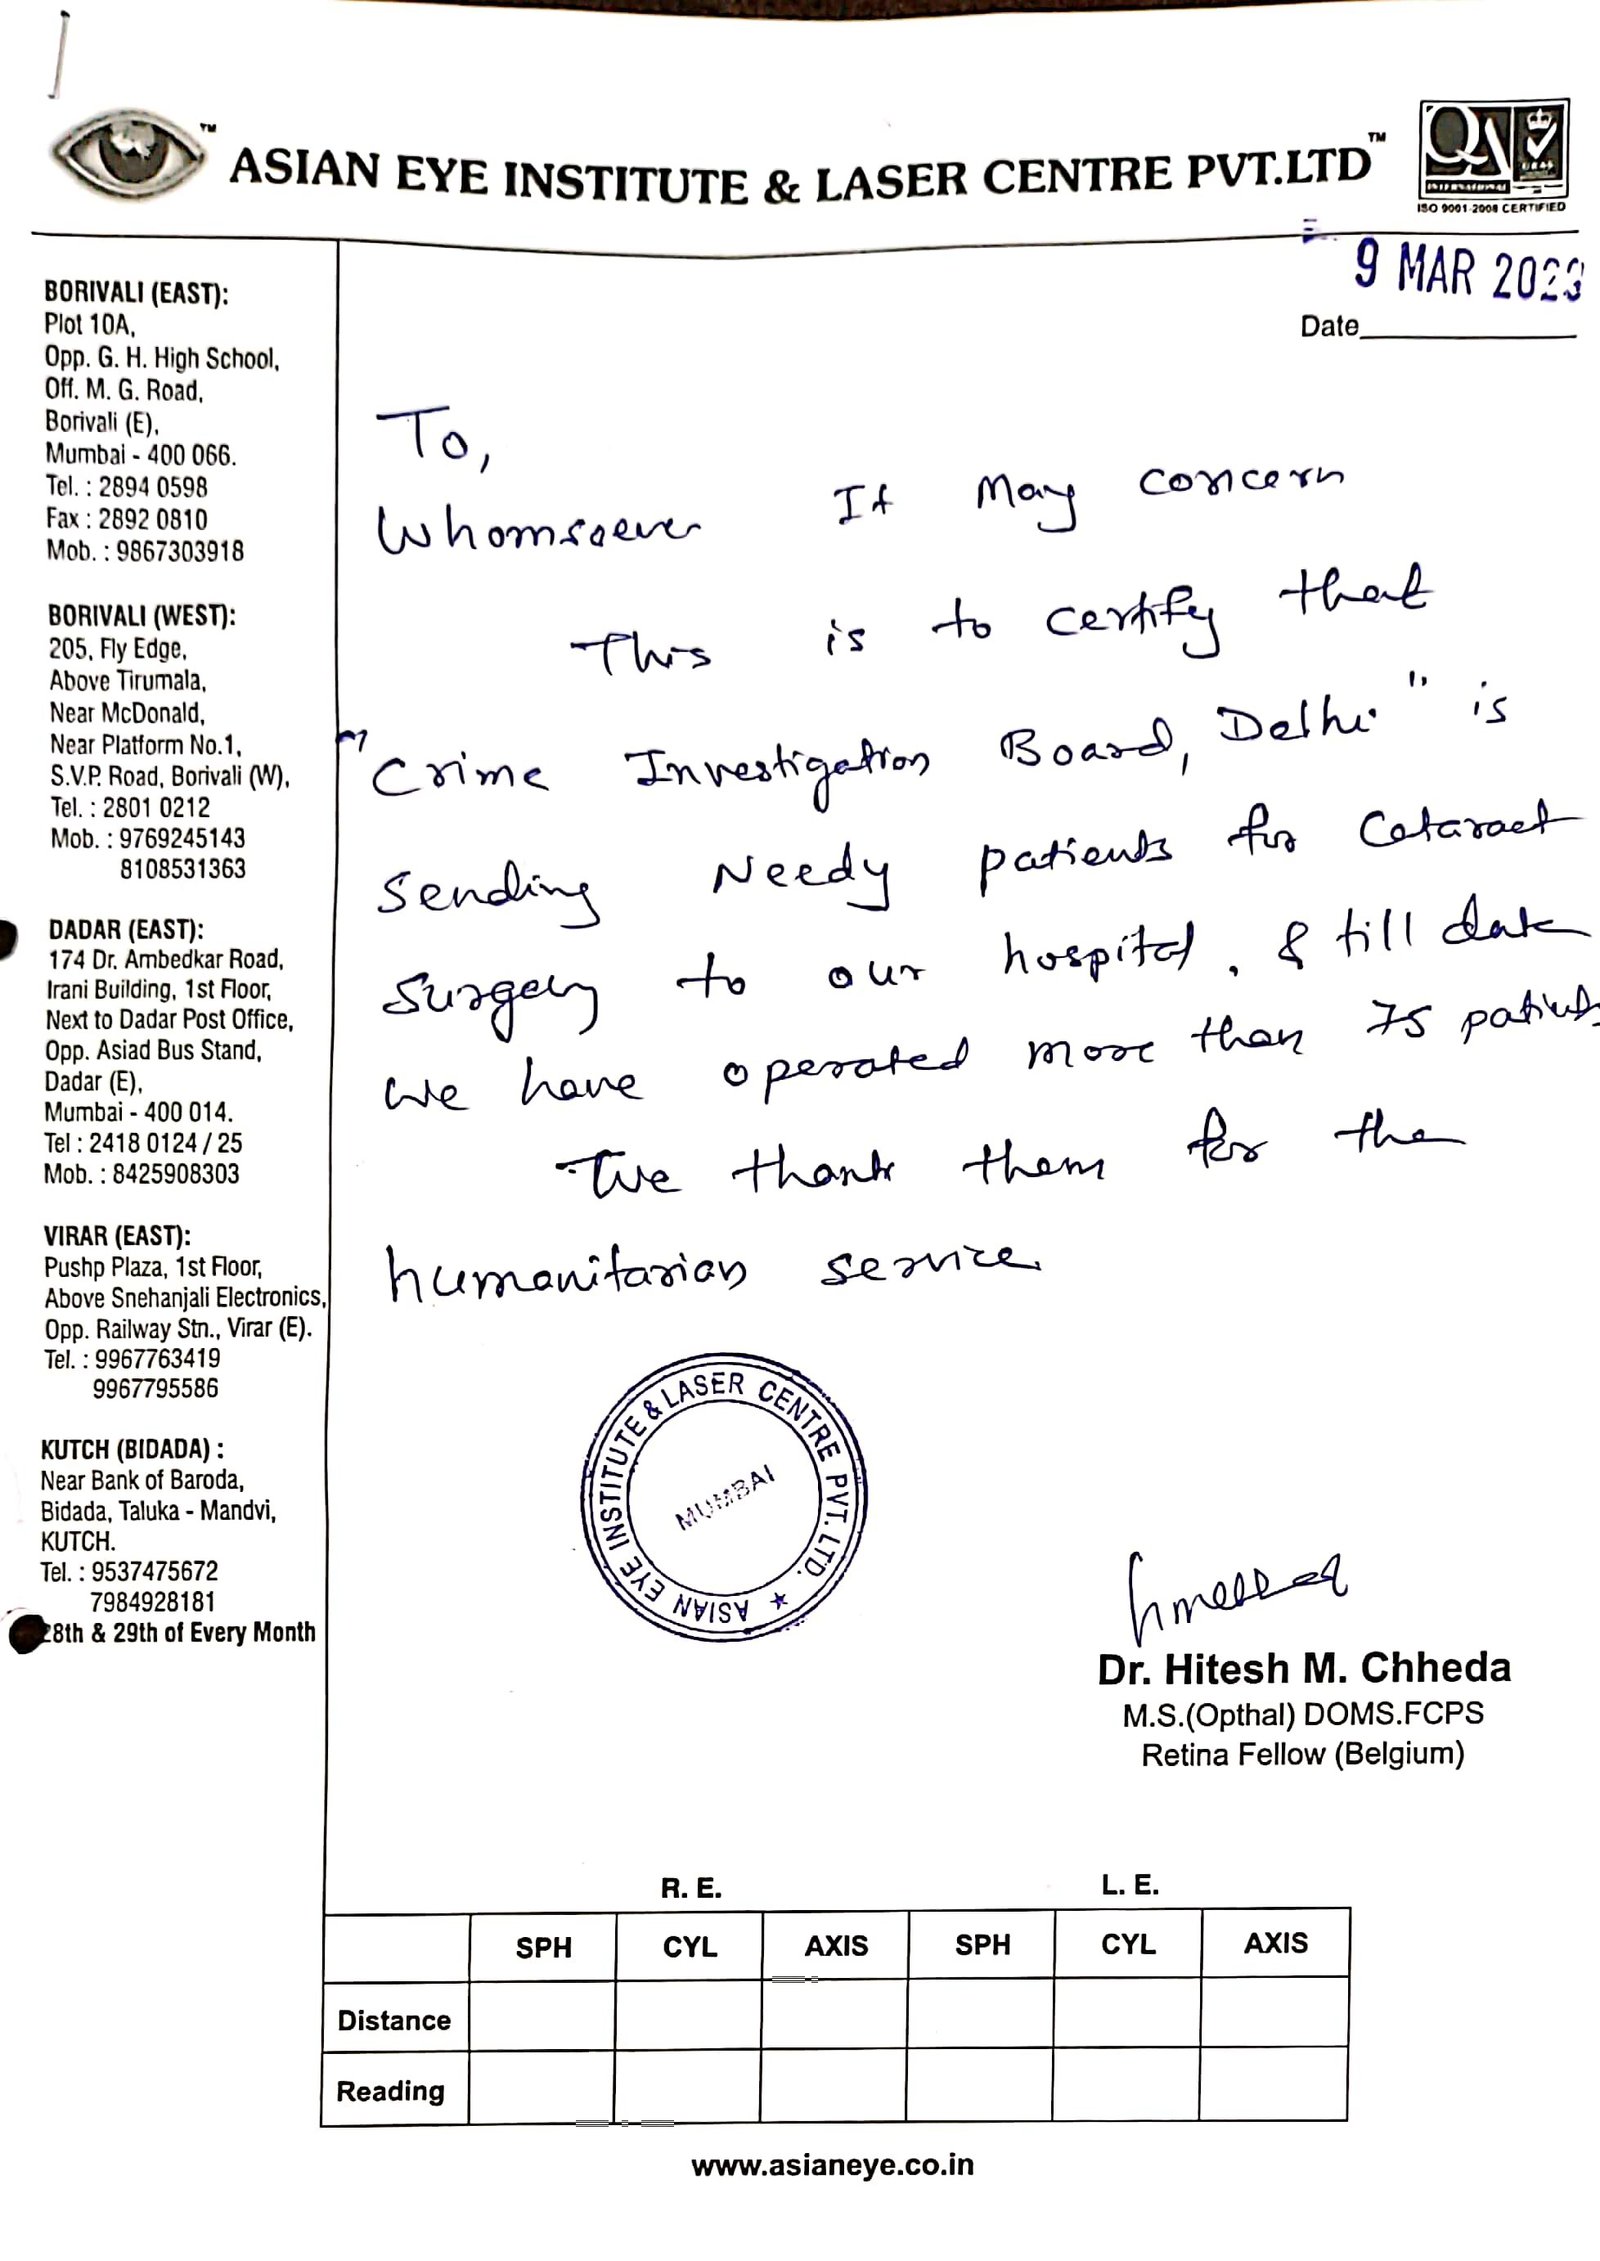 ASIAN EYE INSTITUTE & LASER CENTRE PVT.LTD™
™
QA
INTERNATIONAL
UKAS
ISO 9001-2008 CERTIFIED
9 MAR 2023
Date
BORIVALI (EAST):
Plot 10A,
Opp. G. H. High School,
Off. M. G. Road,
Borivali (E),
Mumbai - 400 066.
Tel. : 2894 0598
Fax : 2892 0810
Mob. : 9867303918
BORIVALI (WEST):
205, Fly Edge,
Above Tirumala,
Near McDonald,
Near Platform No.1,
S.V.P. Road, Borivali (W),
Tel. : 2801 0212
Mob. : 9769245143
8108531363
DADAR (EAST):
174 Dr. Ambedkar Road,
Irani Building, 1st Floor,
Next to Dadar Post Office,
Opp. Asiad Bus Stand,
Dadar (E),
Mumbai - 400 014.
Tel : 2418 0124 / 25
Mob. : 8425908303
VIRAR (EAST):
Pushp Plaza, 1st Floor,
Above Snehanjali Electronics,
Opp. Railway Stn., Virar (E).
Tel. : 9967763419
9967795586
KUTCH (BIDADA) :
Near Bank of Baroda,
Bidada, Taluka - Mandvi,
KUTCH.
Tel. : 9537475672
7984928181
28th & 29th of Every Month
To,
Whomsoever It May concern
This is to certify that
"Crime Investigation Board, Delhi." is
sending Needy patients for Cataract
surgery to our hospital. & till date
we have operated more than 75 patients
We thank them for the
humanitarian service.
ASIAN EYE INSTITUTE & LASER CENTRE PVT. LTD. ★
MUMBAI
Dr. Hitesh M. Chheda
M.S.(Opthal) DOMS.FCPS
Retina Fellow (Belgium)
R. E. L. E.
SPH CYL AXIS SPH CYL AXIS
Distance
Reading
www.asianeye.co.in